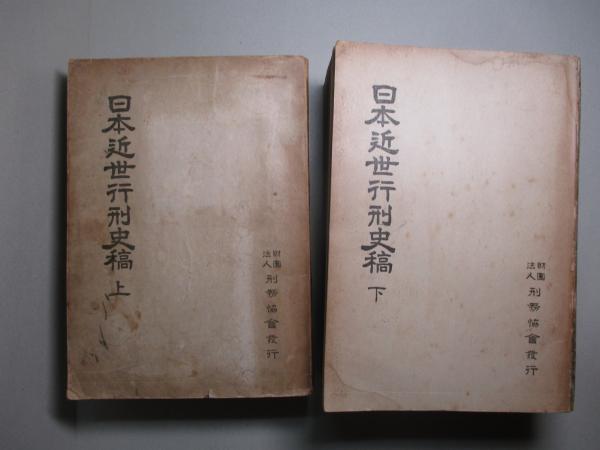 日本近世行刑史稿 上
財團法人 刑務協會發行
日本近世行刑史稿 下
財團法人 刑務協會發行